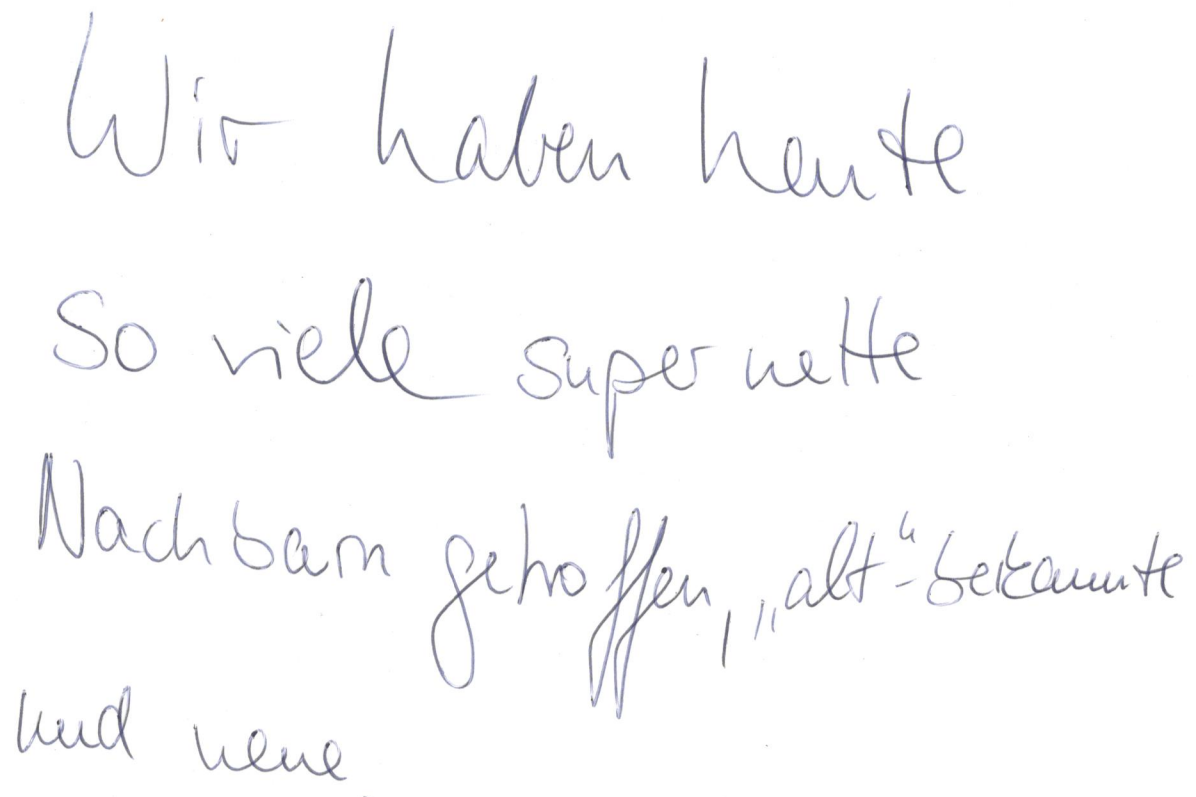 Wir haben heute
so viele super nette
Nachbarn getroffen, „alt“-bekannte
und neue